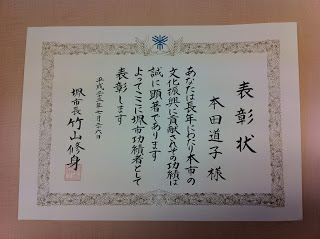 表彰状
本田道子 様
あなたは長年にわたり本市の
文化振興に貢献されその功績は
誠に顕著であります
よってここに堺市功績者として
表彰します
平成二十三年七月二十六日
堺市長 竹山修身